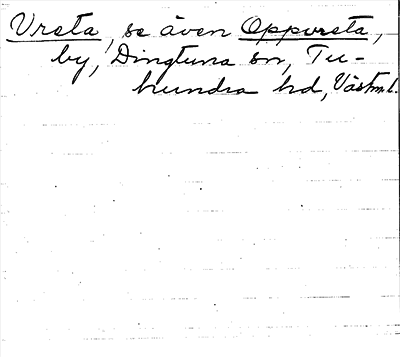 Vrsta, se även Oppvrsta,
by, Dingtuna sn, Tu-
hundra hd, Västm.l.